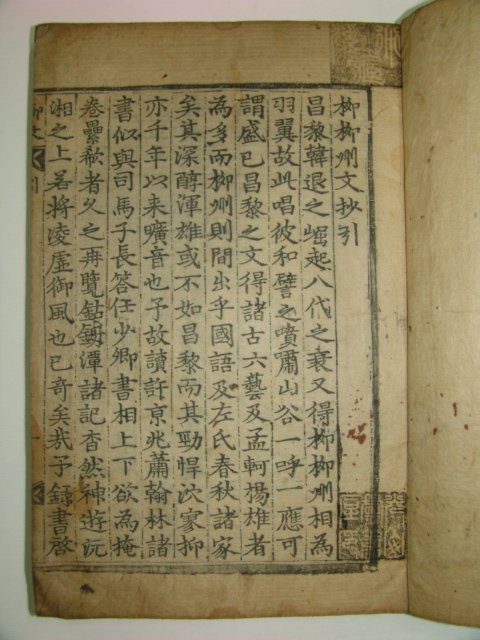 柳柳州文抄引
昌黎韓退之崛起八代之衰又得柳柳州相為
羽翼故此唱彼和譬之噴嘯山谷一呼一應可
謂盛已昌黎之文得諸古六藝及孟軻楊雄者
為多而柳州則間出乎國語及左氏春秋諸家
矣其深醇渾雄或不如昌黎而其勁悍泬寥抑
亦千年以来曠音也予故讀許京兆蕭翰林諸
書似與司馬子長答任少卿書相上下欲為掩
卷纍欷者久之再覽鈷鉧潭諸記杳然神遊沅
湘之上若將凌虛御風也已奇矣哉予錄書啓
柳文
引